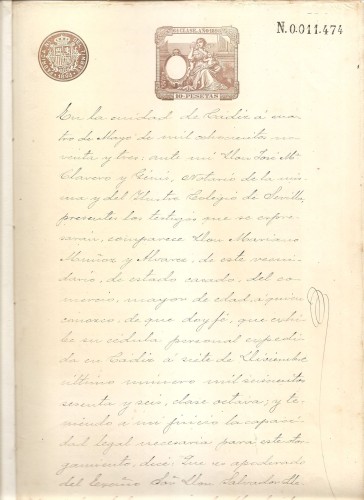 N.0.011.474
10 PESETAS
En la ciudad de Cadiz á cua-
tro de Mayo de mil ochocientos no-
venta y tres: ante mi Don José Mª
Clavero y Génis, Notario de la mis-
ma y del Ilustre Colegio de Sevilla,
presentes los testigos que se expre-
saran, comparece Don Marciano
Muñoz y Alvarez, de este vecin-
dario, de estado casado, del co-
mercio, mayor de edad á quien
conozco, de que doy fé, que exhi-
be su cédula personal expedi-
da en Cádiz á siete de Diciembre
último número mil quinientos
setenta y seis, clase octava; y te-
niendo á mi juicio la capaci-
dad legal necesaria para este otor-
gamiento, dice: Que es apoderado
del Excmo Sor Don Salvador